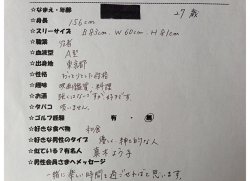 ☆なまえ・年齢 27歳
☆身長 156cm
☆スリーサイズ B83cm W60cm H82cm
☆職業
☆血液型 A型
☆出身地 東京都
☆性格 おっとりした性格
☆趣味 映画鑑賞、料理
☆お酒 強くはないですが好きです。
☆タバコ 吸いません。
☆ゴルフ経験 有・無
☆好きな食べ物 和食
☆好きな男性のタイプ 優しい紳士的な人
☆似ている?有名人 真木よう子
☆男性会員さまへメッセージ
一緒に楽しい時間を過ごせればと思います。